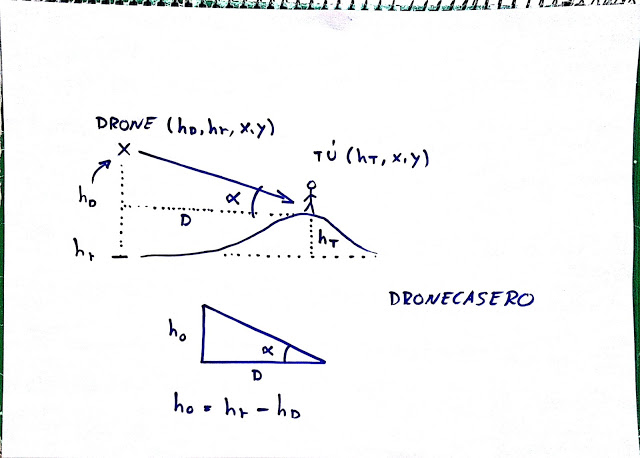 DRONE (hD, hr, x, y)
TÚ (hT, x, y)
hD
α
D
hr
hT
DRONECASERO
ho
α
D
ho = hr - hD